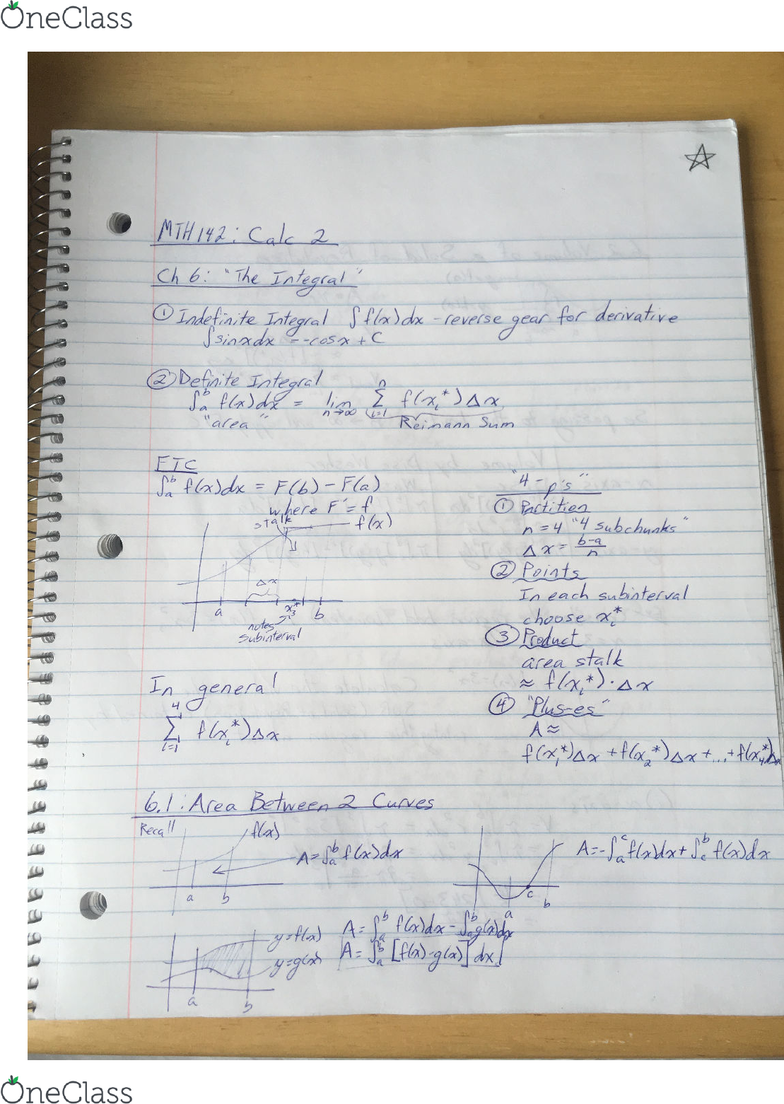 OneClass
MTH 142: Calc 2
Ch 6: "The Integral"
① Indefinite Integral ∫f(x)dx - reverse gear for derivative
∫sinxdx = -cosx + C
② Definite Integral
∫ₐᵇ f(x)dx = lim n→∞ Σ i=1 n f(xᵢ*)Δx
"area" Reimann Sum
FTC
∫ₐᵇ f(x)dx = F(b) - F(a)
where F' = f
stalk f(x)
Δx
a x₃* b
notes
subinterval
"4-p's"
① Partition
n = 4 "4 subchunks"
Δx = b-a/n
② Points
In each subinterval
choose xᵢ*
③ Product
area stalk
≈ f(xᵢ*)·Δx
④ "Plus-es"
A≈
f(x₁*)Δx + f(x₂*)Δx + ... + f(x₄*)Δx
In general
4
Σ f(xᵢ*)Δx
i=1
6.1: Area Between 2 Curves
Recall f(x)
A=∫ₐᵇ f(x)dx
a b
A=-∫ₐᶜ f(x)dx + ∫cᵇ f(x)dx
a c b
y=f(x) A=∫ₐᵇ f(x)dx - ∫ₐᵇ g(x)dx
y=g(x) A=∫ₐᵇ [f(x)-g(x)] dx
a b
OneClass